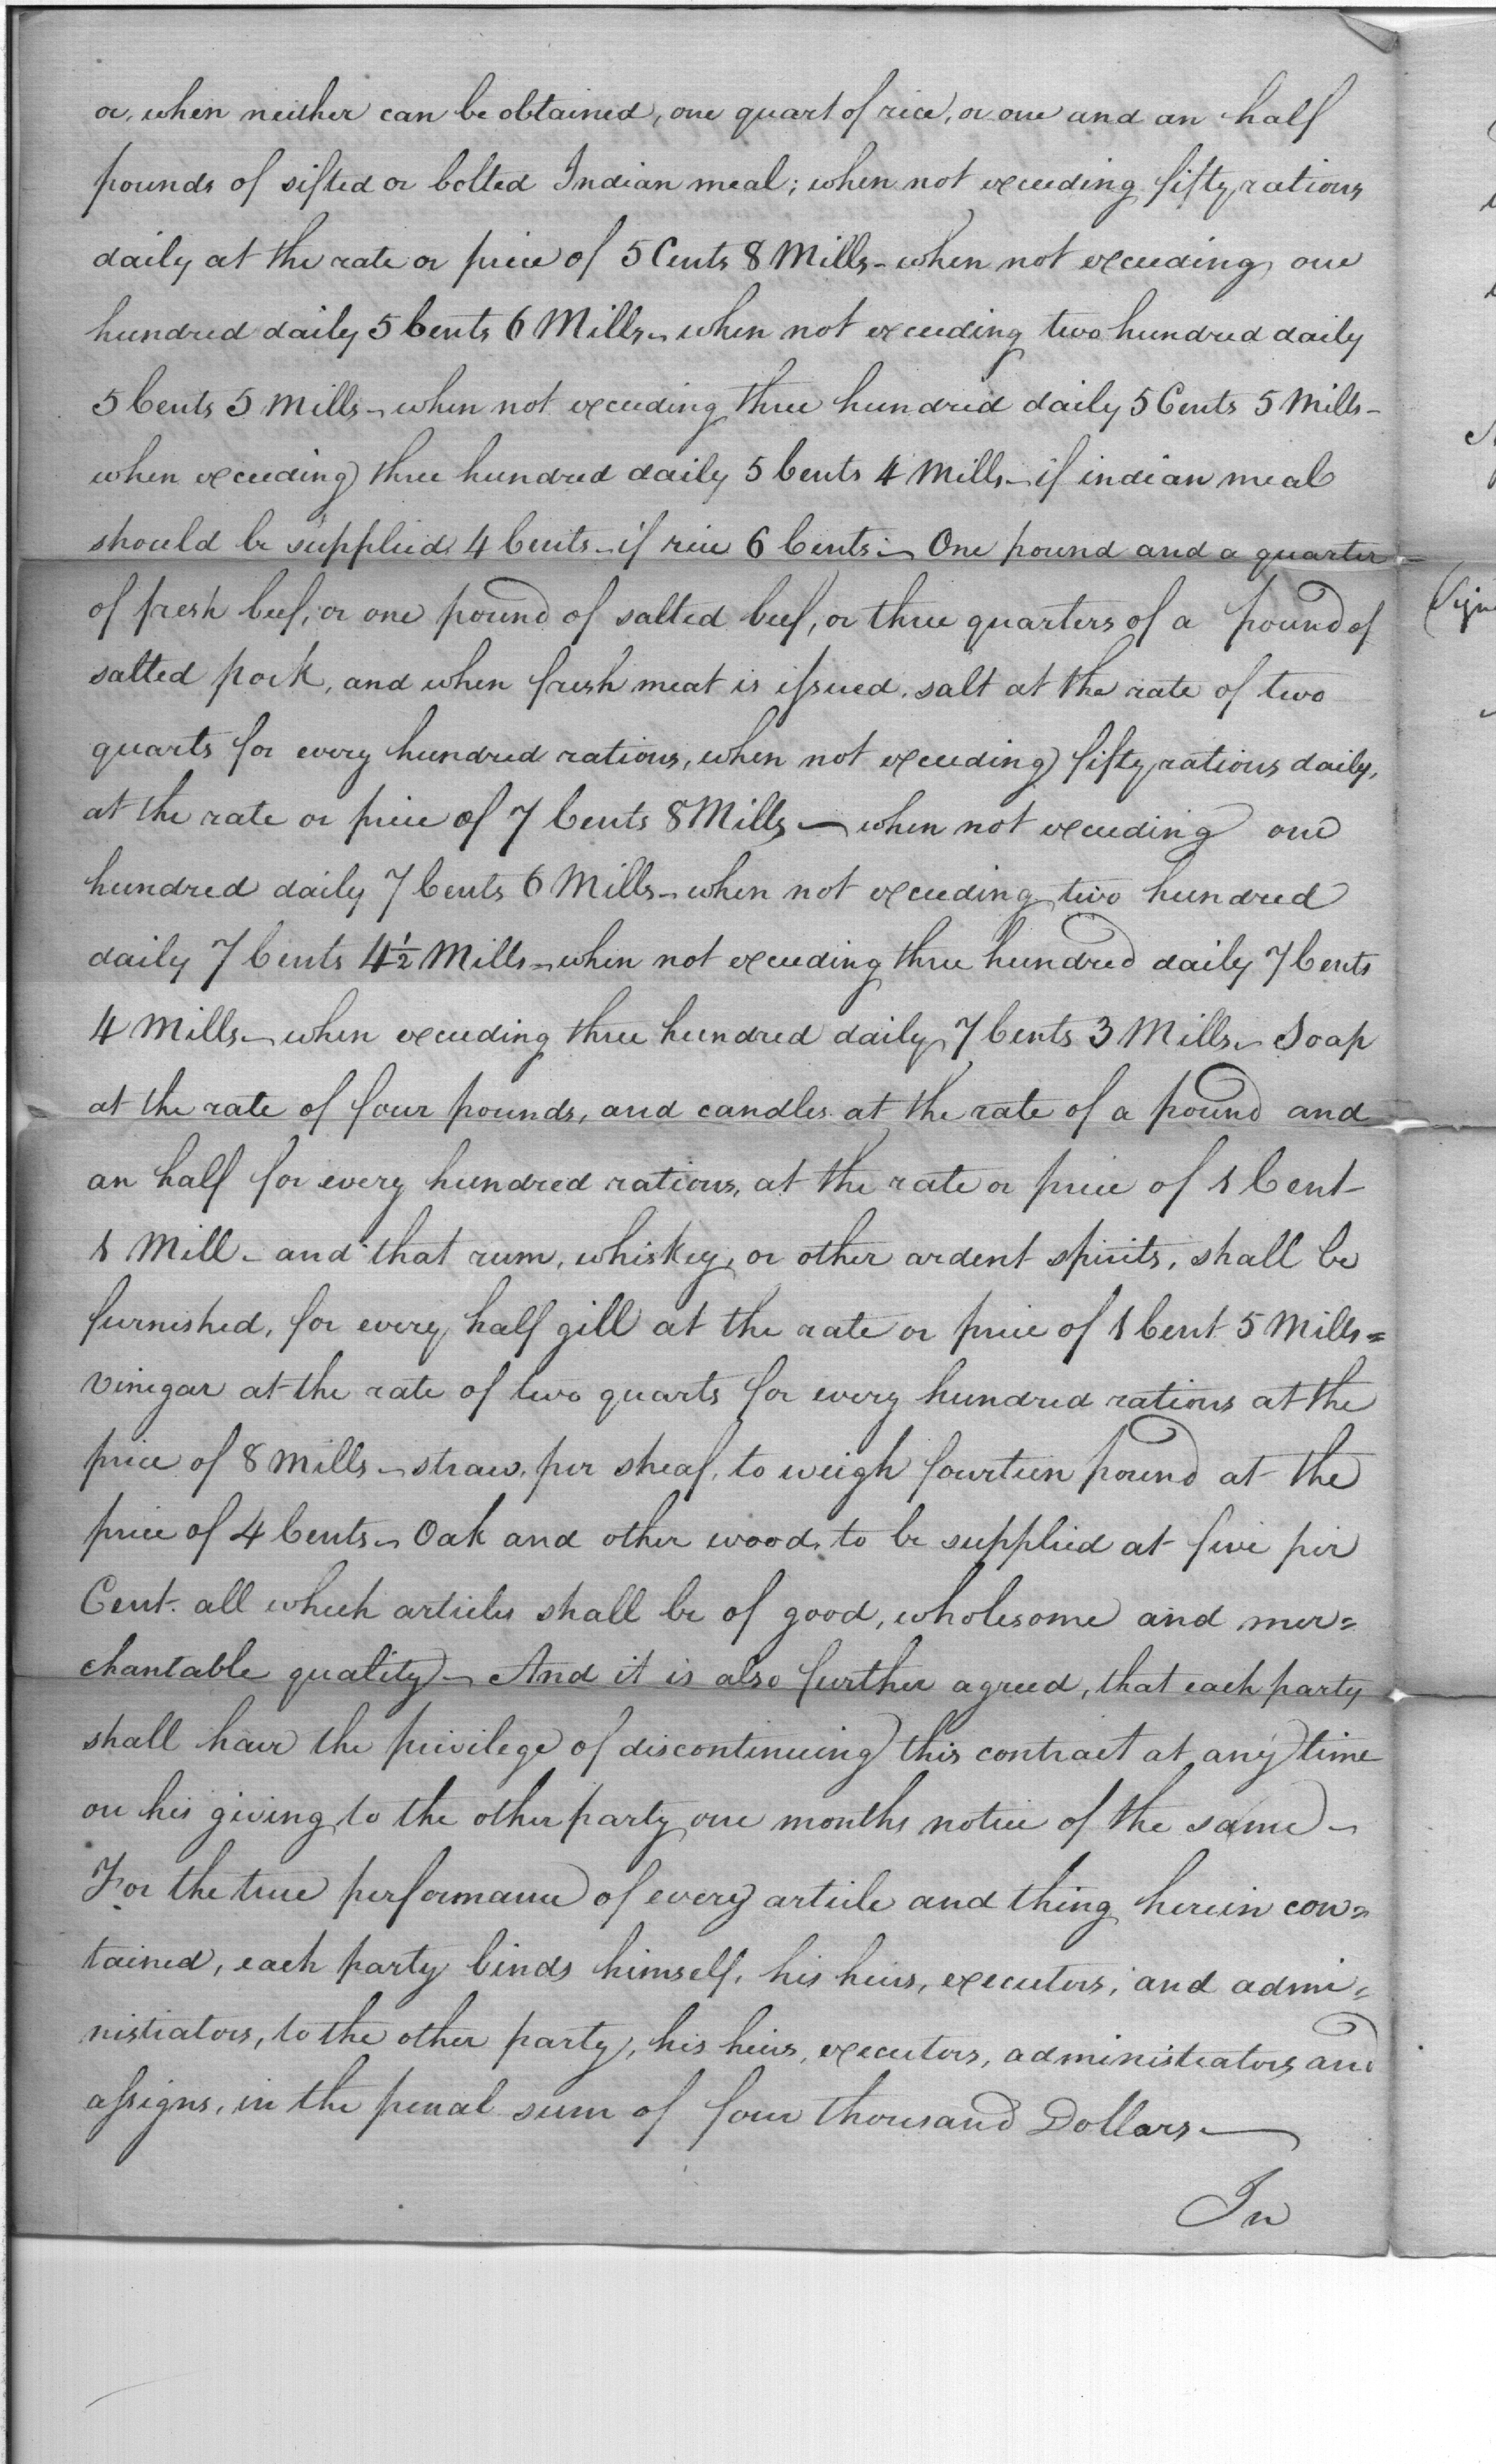 or, when neither can be obtained, one quart of rice, or one and an half
pounds of sifted or bolted Indian meal; when not exceeding fifty rations
daily at the rate or price of 5 Cents 8 Mills - when not exceeding one
hundred daily 5 Cents 6 Mills - when not exceeding two hundred daily
5 Cents 5 Mills - when not exceeding three hundred daily 5 Cents 5 Mills -
when exceeding three hundred daily 5 Cents 4 Mills - if indian meal
should be supplied 4 Cents - if rice 6 Cents - One pound and a quarter
of fresh beef, or one pound of salted beef, or three quarters of a pound of
salted pork, and when fresh meat is issued, salt at the rate of two
quarts for every hundred rations, when not exceeding fifty rations daily,
at the rate or price of 7 Cents 8 Mills - when not exceeding one
hundred daily 7 Cents 6 Mills - when not exceeding two hundred
daily 7 Cents 4½ Mills - when not exceeding three hundred daily 7 Cents
4 Mills - when exceeding three hundred daily 7 Cents 3 Mills - Soap
at the rate of four pounds, and candles at the rate of a pound and
an half for every hundred rations, at the rate or price of 1 Cent
1 Mill - and that rum, whiskey, or other ardent spirits, shall be
furnished, for every half gill at the rate or price of 1 Cent 5 Mills =
vinegar at the rate of two quarts for every hundred rations at the
price of 8 Mills - straw, per sheaf, to weigh fourteen pound at the
price of 4 Cents - Oak and other wood, to be supplied at five per
Cent. all which articles shall be of good, wholesome and mer=
chantable quality - And it is also further agreed, that each party
shall have the privilege of discontinuing this contract at any time
on his giving to the other party one months notice of the same -
For the true performance of every article and thing herein con=
tained, each party binds himself, his heirs, executors, and admi=
nistrators, to the other party, his heirs, executors, administrators and
assigns, in the penal sum of four thousand Dollars -
In